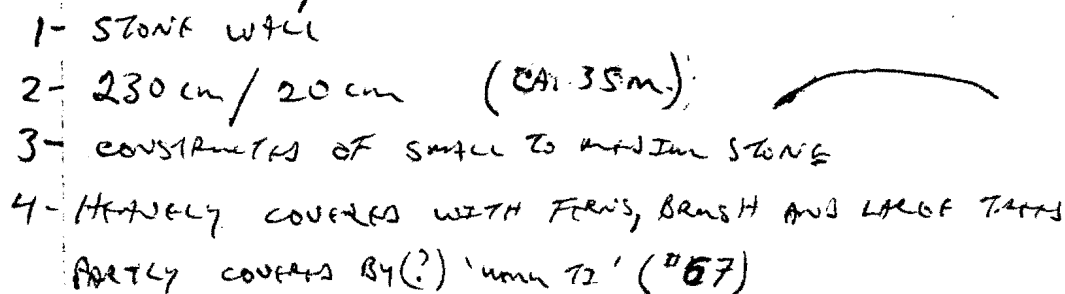 1- STONE WALL
2- 230 cm / 20 cm (CA. 35m.)
3- CONSTRUCTED OF SMALL TO MEDIUM STONE
4- HEAVELY COVERED WITH FERNS, BRUSH AND LARGE TREES
PARTLY COVERED BY (?) ' ' (#67)